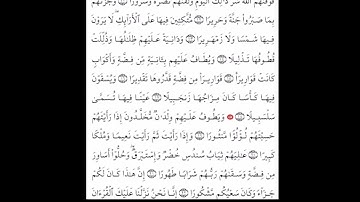 فَوَقَىٰهُمُ ٱللَّهُ شَرَّ ذَٰلِكَ ٱلْيَوْمِ وَلَقَّىٰهُمْ نَضْرَةً وَسُرُورًا ۝ وَجَزَىٰهُم
بِمَا صَبَرُوا۟ جَنَّةً وَحَرِيرًا ۝ مُّتَّكِـِٔينَ فِيهَا عَلَى ٱلْأَرَآئِكِ ۖ لَا يَرَوْنَ
فِيهَا شَمْسًا وَلَا زَمْهَرِيرًا ۝ وَدَانِيَةً عَلَيْهِمْ ظِلَٰلُهَا وَذُلِّلَتْ
قُطُوفُهَا تَذْلِيلًا ۝ وَيُطَافُ عَلَيْهِم بِـَٔانِيَةٍ مِّن فِضَّةٍ وَأَكْوَابٍ
كَانَتْ قَوَارِيرَا۠ ۝ قَوَارِيرَا۟ مِن فِضَّةٍ قَدَّرُوهَا تَقْدِيرًا ۝ وَيُسْقَوْنَ
فِيهَا كَأْسًا كَانَ مِزَاجُهَا زَنجَبِيلًا ۝ عَيْنًا فِيهَا تُسَمَّىٰ
سَلْسَبِيلًا ۝ وَيَطُوفُ عَلَيْهِمْ وِلْدَٰنٌ مُّخَلَّدُونَ إِذَا رَأَيْتَهُمْ
حَسِبْتَهُمْ لُؤْلُؤًا مَّنثُورًا ۝ وَإِذَا رَأَيْتَ ثَمَّ رَأَيْتَ نَعِيمًا وَمُلْكًا
كَبِيرًا ۝ عَٰلِيَهُمْ ثِيَابُ سُندُسٍ خُضْرٌ وَإِسْتَبْرَقٌ ۖ وَحُلُّوٓا۟ أَسَاوِرَ
مِن فِضَّةٍ وَسَقَىٰهُمْ رَبُّهُمْ شَرَابًا طَهُورًا ۝ إِنَّ هَٰذَا كَانَ لَكُمْ
جَزَآءً وَكَانَ سَعْيُكُم مَّشْكُورًا ۝ إِنَّا نَحْنُ نَزَّلْنَا عَلَيْكَ ٱلْقُرْءَانَ